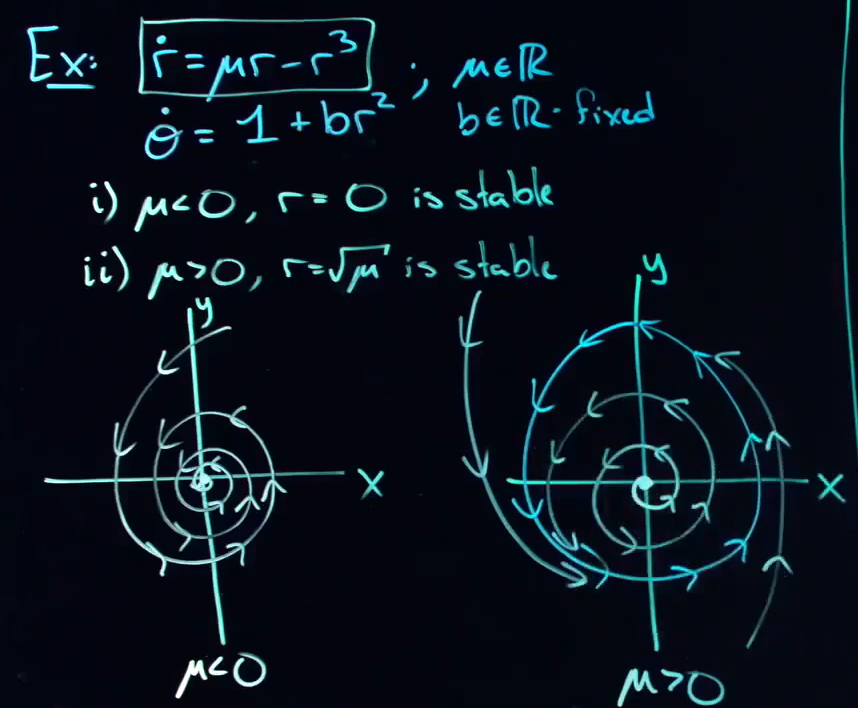 Ex: ṙ = μr - r³ ; μ∈ℝ
θ̇ = 1 + br² b∈ℝ - fixed
i) μ<0, r = 0 is stable
ii) μ>0, r=√μ is stable
y
y
x
x
μ<0
μ>0